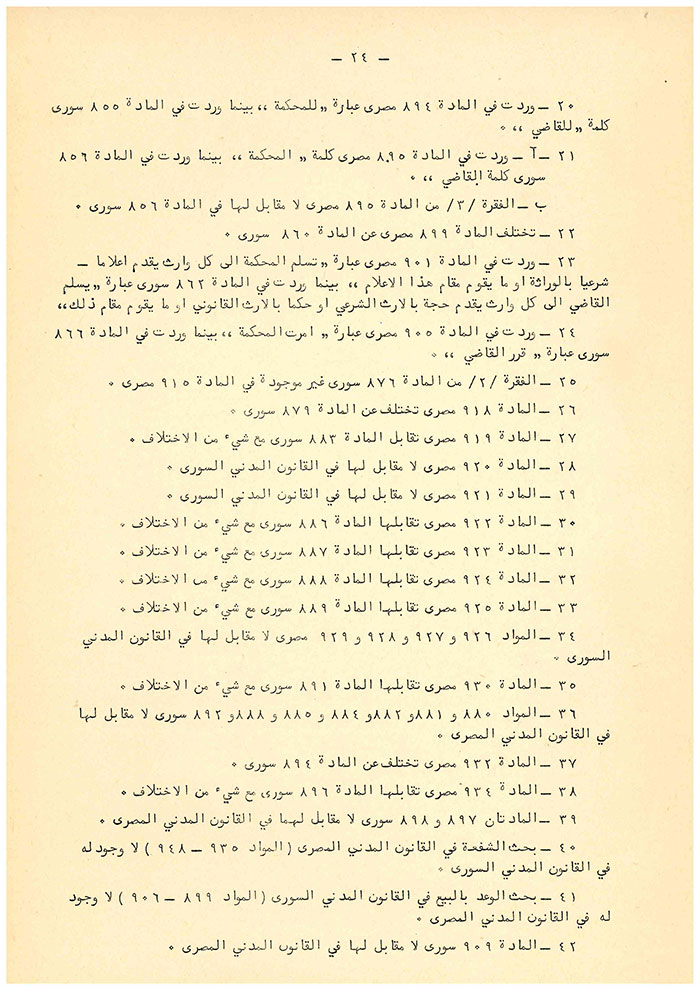 — ٢٤ —
٢٠ — وردت في المادة ٨٩٤ مصرى عبارة „للمحكمة ‟ بينما وردت في المادة ٨٥٥ سورى
كلمة „للقاضي ‟ ٠
٢١ — آ — وردت في المادة ٨٩٥ مصرى كلمة „ المحكمة ‟ بينما وردت في المادة ٨٥٦
سورى كلمة القاضي ‟ ٠
ب — الفقرة /٣/ من المادة ٨٩٥ مصرى لا مقابل لها في المادة ٨٥٦ سورى ٠
٢٢ — تختلف المادة ٨٩٩ مصرى عن المادة ٨٦٠ سورى ٠
٢٣ — وردت في المادة ٩٠١ مصرى عبارة „تسلم المحكمة الى كل وارث يقدم اعلاما —
شرعيا بالوراثة او ما يقوم مقام هذا الاعلام ‟ بينما وردت في المادة ٨٦٢ سورى عبارة „يسلم
القاضي الى كل وارث يقدم حجة بالارث الشرعي او حكما بالارث القانوني او ما يقوم مقام ذلك‟
٢٤ — وردت في المادة ٩٠٥ مصرى عبارة „ امرت المحكمة ‟ بينما وردت في المادة ٨٦٦
سورى عبارة „ قرر القاضي ‟ ٠
٢٥ — الفقرة /٢/ من المادة ٨٧٦ سورى غير موجودة في المادة ٩١٥ مصرى ٠
٢٦ — المادة ٩١٨ مصرى تختلف عن المادة ٨٧٩ سورى ٠
٢٧ — المادة ٩١٩ مصرى تقابل المادة ٨٨٣ سورى مع شيء من الاختلاف ٠
٢٨ — المادة ٩٢٠ مصرى لا مقابل لها في القانون المدني السورى ٠
٢٩ — المادة ٩٢١ مصرى لا مقابل لها في القانون المدني السورى ٠
٣٠ — المادة ٩٢٢ مصرى تقابلها المادة ٨٨٦ سورى مع شيء من الاختلاف ٠
٣١ — المادة ٩٢٣ مصرى تقابلها المادة ٨٨٧ سورى مع شيء من الاختلاف ٠
٣٢ — المادة ٩٢٤ مصرى تقابلها المادة ٨٨٨ سورى مع شيء من الاختلاف ٠
٣٣ — المادة ٩٢٥ مصرى تقابلها المادة ٨٨٩ سورى مع شيء من الاختلاف ٠
٣٤ — المواد ٩٢٦ و ٩٢٧ و ٩٢٨ و ٩٢٩ مصرى لا مقابل لها في القانون المدني
السورى ٠
٣٥ — المادة ٩٣٠ مصرى تقابلها المادة ٨٩١ سورى مع شيء من الاختلاف ٠
٣٦ — المواد ٨٨٠ و ٨٨١ و ٨٨٢و ٨٨٤ و ٨٨٥ و ٨٨٨و ٨٩٢ سورى لا مقابل لها
في القانون المدني المصرى ٠
٣٧ — المادة ٩٣٢ مصرى تختلف عن المادة ٨٩٤ سورى ٠
٣٨ — المادة ٩٣٤ مصرى تقابلها المادة ٨٩٦ سورى مع شيء من الاختلاف ٠
٣٩ — المادتان ٨٩٧ و ٨٩٨ سورى لا مقابل لهما في القانون المدني المصرى ٠
٤٠ — بحث الشفعة في القانون المدني المصرى (المواد ٩٣٥ — ٩٤٨ ) لا وجود له
في القانون المدني السورى ٠
٤١ — بحث الوعد بالبيع في القانون المدني السورى (المواد ٨٩٩ — ٩٠٦ ) لا وجود
له في القانون المدني المصرى ٠
٤٢ — المادة ٩٠٩ سورى لا مقابل لها في القانون المدني المصرى ٠